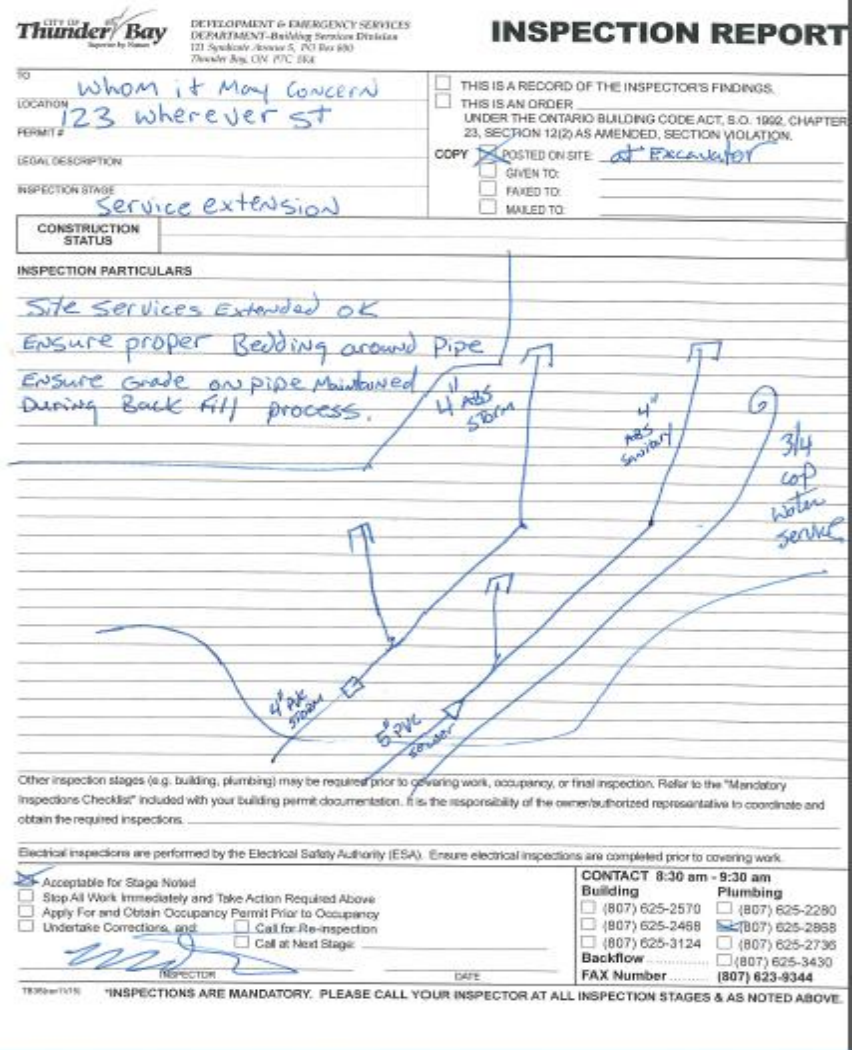 CITY OF
Thunder Bay
Superior by Nature
DEVELOPMENT & EMERGENCY SERVICES
DEPARTMENT-Building Services Division
121 Syndicate Avenue S, PO Box 800
Thunder Bay, ON P7C 5K4
INSPECTION REPORT
TO
Whom it May Concern
LOCATION
123 wherever St
PERMIT #
LEGAL DESCRIPTION
INSPECTION STAGE
Service extension
THIS IS A RECORD OF THE INSPECTOR'S FINDINGS.
THIS IS AN ORDER
UNDER THE ONTARIO BUILDING CODE ACT, S.O. 1992, CHAPTER
23, SECTION 12(2) AS AMENDED, SECTION VIOLATION.
COPY POSTED ON SITE: at Excavator
GIVEN TO:
FAXED TO:
MAILED TO:
CONSTRUCTION
STATUS
INSPECTION PARTICULARS
Site Services Extended OK
Ensure proper Bedding around Pipe
Ensure Grade on pipe Maintained
During Back Fill process.
4" ABS
STORM
4"
ABS
Sanitary
3/4
cop
Water
Service
4" PVC
STORM
5" PVC
sewer
Other inspection stages (e.g. building, plumbing) may be required prior to covering work, occupancy, or final inspection. Refer to the "Mandatory
Inspections Checklist" included with your building permit documentation. It is the responsibility of the owner/authorized representative to coordinate and
obtain the required inspections.
Electrical inspections are performed by the Electrical Safety Authority (ESA). Ensure electrical inspections are completed prior to covering work.
Acceptable for Stage Noted
Stop All Work Immediately and Take Action Required Above
Apply For and Obtain Occupancy Permit Prior to Occupancy
Undertake Corrections, and: Call for Re-inspection
Call at Next Stage:
INSPECTOR DATE
CONTACT 8:30 am - 9:30 am
Building Plumbing
(807) 625-2570 (807) 625-2280
(807) 625-2468 (807) 625-2868
(807) 625-3124 (807) 625-2736
Backflow (807) 625-3430
FAX Number (807) 623-9344
*INSPECTIONS ARE MANDATORY. PLEASE CALL YOUR INSPECTOR AT ALL INSPECTION STAGES & AS NOTED ABOVE.